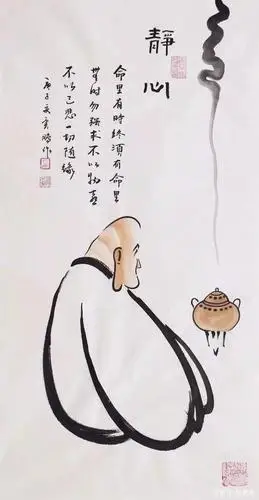 靜心
命里有時終須有命里
無时勿强求不以物喜
不以己悲一切随緣
庚子
作